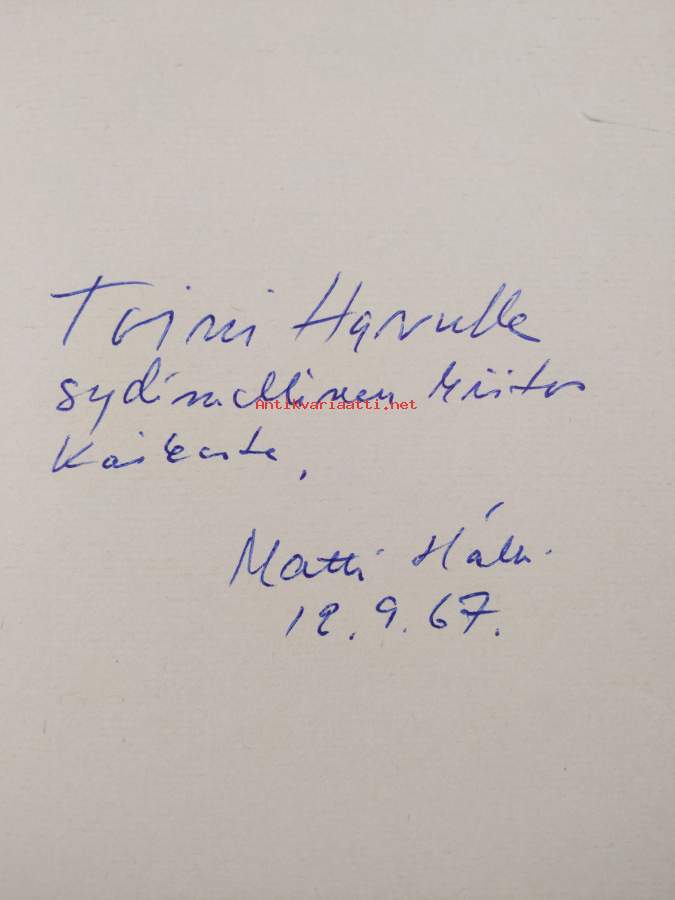 Toini Havulle
sydämellinen kiitos
Antikvariaatti.net
kaikesta,
Matti Hälli
12.9.67.